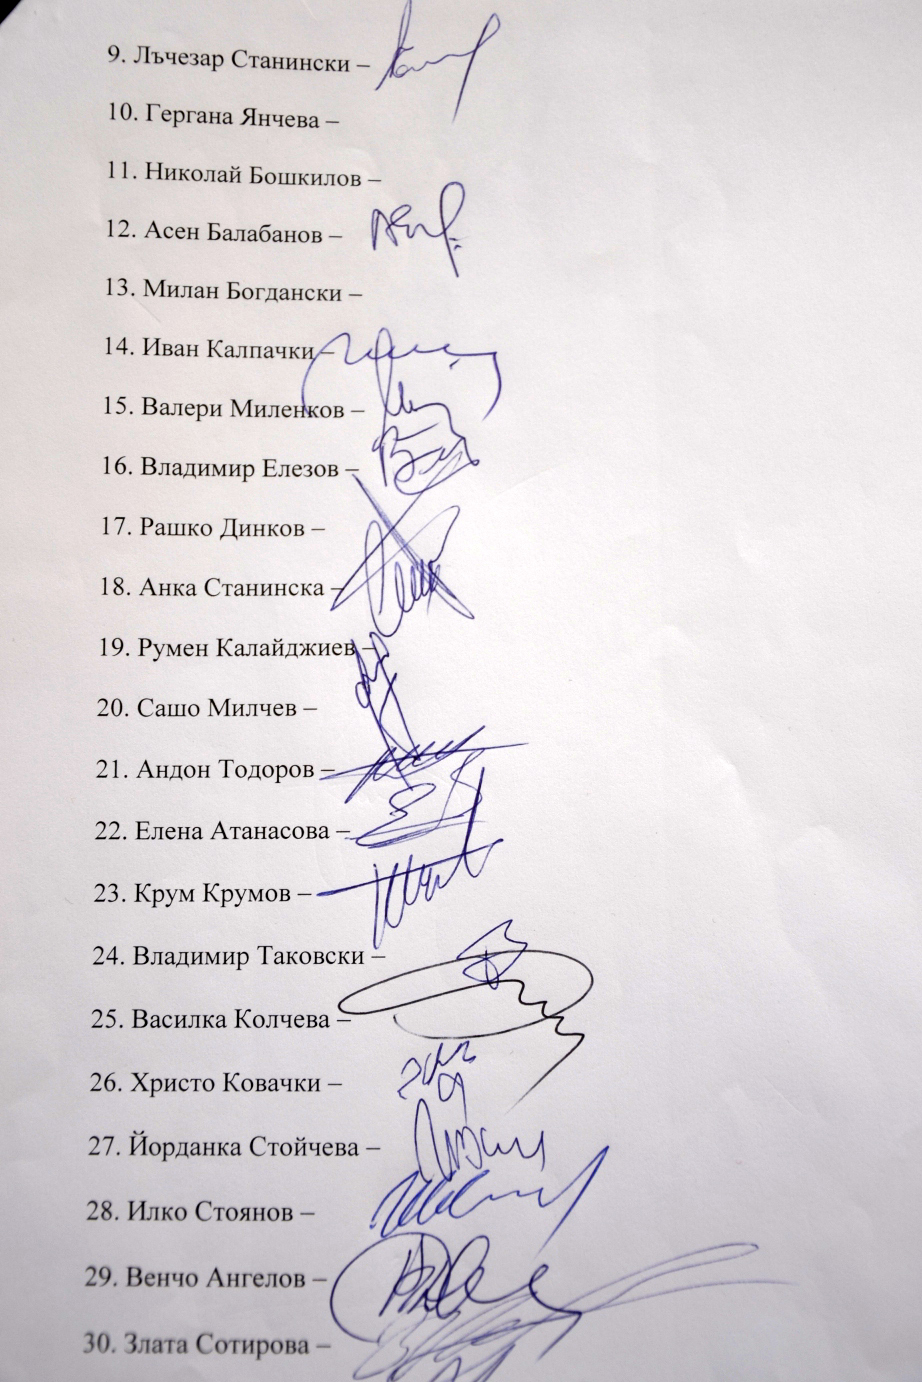 9. Лъчезар Станински –
10. Гергана Янчева –
11. Николай Бошкилов –
12. Асен Балабанов –
13. Милан Богдански –
14. Иван Калпачки –
15. Валери Миленков –
16. Владимир Елезов –
17. Рашко Динков –
18. Анка Станинска –
19. Румен Калайджиев –
20. Сашо Милчев –
21. Андон Тодоров –
22. Елена Атанасова –
23. Крум Крумов –
24. Владимир Таковски –
25. Василка Колчева –
26. Христо Ковачки –
27. Йорданка Стойчева –
28. Илко Стоянов –
29. Венчо Ангелов –
30. Злата Сотирова –